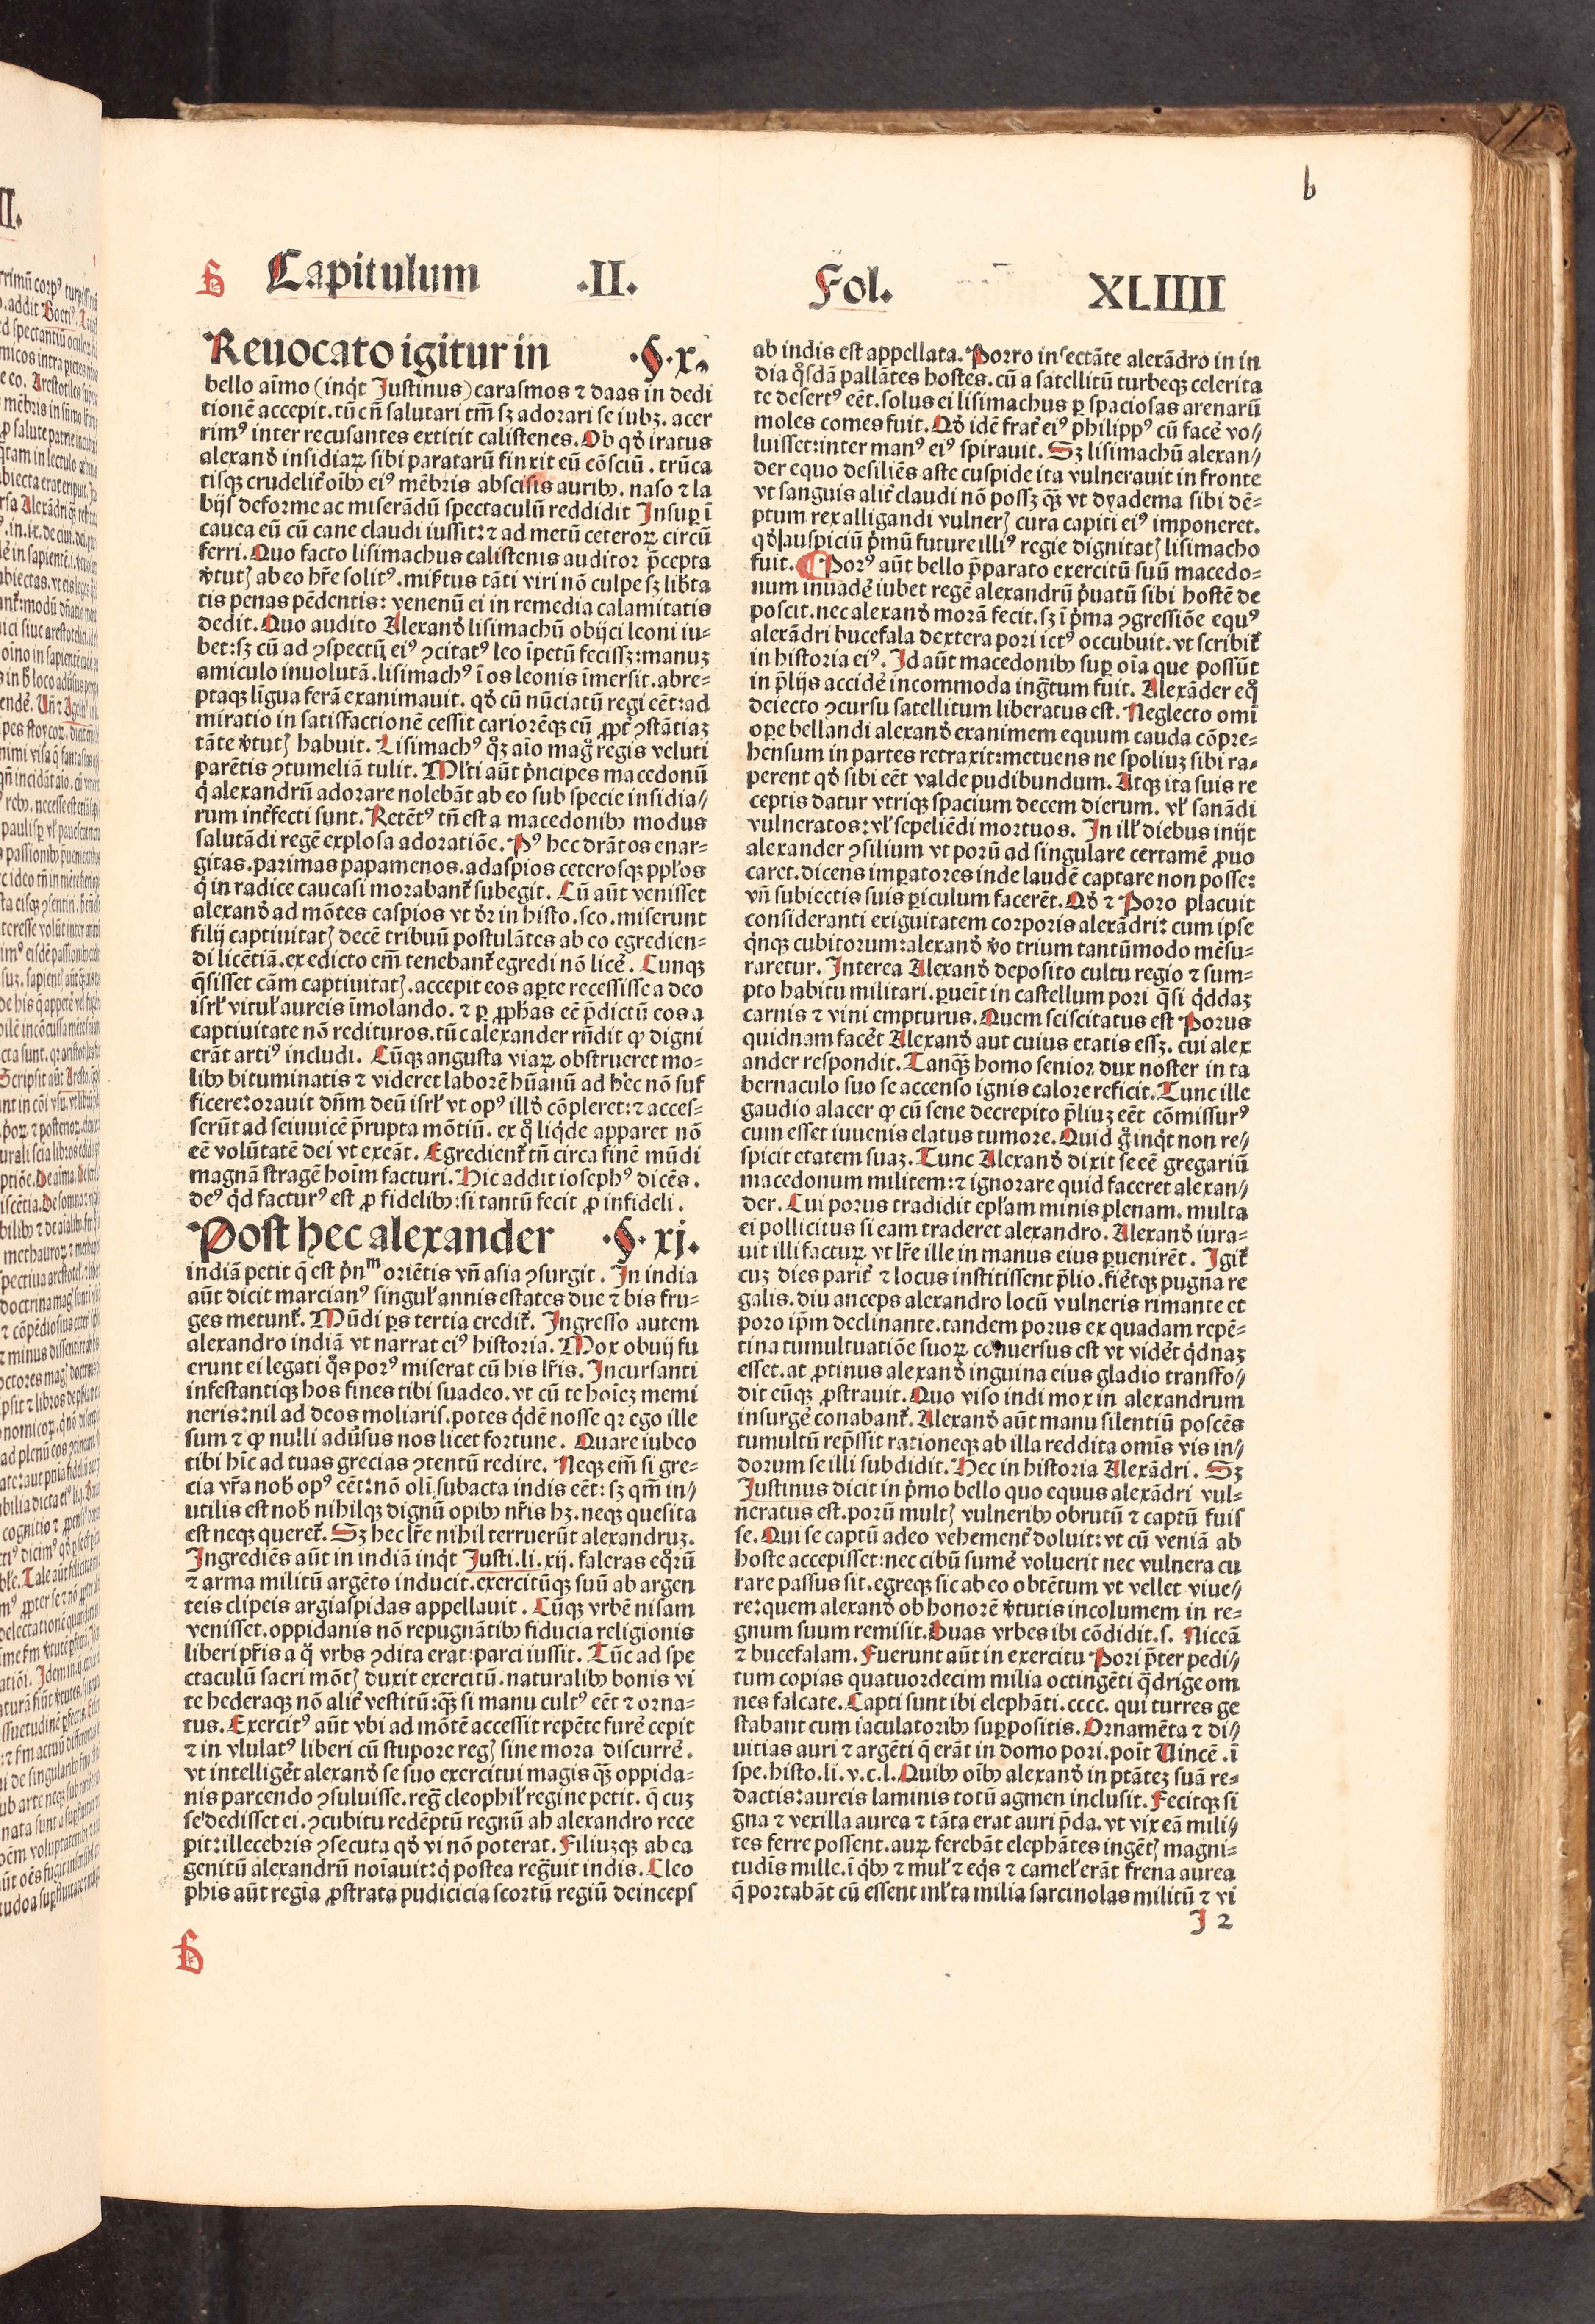 b
Capitulum .II. Fol. XLIIII
Reuocato igitur in .§.x.
bello aĩmo (inq̃t Iustinus) carasmos ⁊ daas in dedi
tionē accepit. tũ cñ salutari tm̃ sꝫ adorari se iubꝫ. acer
rimꝰ inter recusantes extitit calistenes. Ob qđ iratus
alexanđ insidiaꝝ sibi parataru finxit eũ cōsciũ. trũca
tisqꝫ crudelit̃ oĩbꝫ eiꝰ mēbris abscisis auribꝫ. naso ⁊ la
bijs deforme ac miserādũ spectaculũ reddidit Insuꝑ ĩ
cauea eũ cũ cane claudi iussit:⁊ ad metũ ceteroꝝ circũ
ferri. Quo facto lisimachus calistenis auditor p̃cepta
v̓tutꝭ ab eo hr̃e solitꝰ. mis̓tus tāti viri nō culpe sꝫ lib̓ta
tis penas pēdentis: venenũ ei in remedia calamitatis
dedit. Quo audito Alexanđ lisimachũ obijci leoni iu⸗
bet:sꝫ cũ ad ꝯspectũ eiꝰ ꝯcitatꝰ leo ĩpetũ fecissꝫ:manuꝫ
amiculo inuolutā. lisimachꝰ ĩ os leonis ĩmersit. abre⸗
ptaqꝫ lĩgua ferā exanimauit. qđ cũ nũciatũ regi eēt:ad
miratio in satisfactionē cessit carioꝛēqꝫ cũ ꝓpt̓ ꝯstātiaꝫ
tāte v̓tutꝭ habuit. Lisimachꝰ qͦꝫ aĩo magͦ regis veluti
parētis ꝯtumeliā tulit. Ml̓ti aũt pͥncipes macedonũ
qͥ alexandrũ adorare nolebāt ab eo sub specie insidia⸗
rum int̓fecti sunt. Retētꝰ tñ est a macedonibꝫ modus
salutādi regē explosa adoratiōe. Pꝰ hec drātos enar⸗
gitas. parimas papamenos. adaspios ceterosqꝫ ppl̓os
qͥ in radice caucasi morabant̃ subegit. Cũ aũt venisset
alexanđ ad mōtes caspios vt đr in histo. sco. miserunt
filij captiuitatꝭ decē tribuũ postulātes ab eo egredien⸗
di licētiā. ex edicto em̃ tenebant̃ egredi nō licē. Cunqꝫ
q̃sisset cām captiuitatꝭ. accepit eos aꝑte recessisse a deo
isrl̓ vitul̓ aureis ĩmolando. ⁊ ꝑ ꝓphas eē p̃dictũ eos a
captiuitate nō redituros. tũc alexander rñdit ꝙ digni
erāt artiꝰ includi. Cũqꝫ angusta viaꝝ obstrueret mo⸗
libꝫ bituminatis ⁊ videret laborē hũanũ ad hec nō suf
ficere:orauit dñm deũ isrl̓ vt opꝰ illđ cōpleret:⁊ acces⸗
serũt ad seiuuicē p̃rupta mōtiũ. ex qͦ liqͥde apparet nō
eē volũtatē dei vt exeāt. Egredient̃ tñ circa finē mũdi
magnā stragē hoĩm facturi. Hic addit iosephꝰ dicēs.
deꝰ qͥd facturꝰ est ꝓ fidelibꝫ:si tantũ fecit ꝓ infideli.
Post hec alexander .§. xj.
indiā petit q̃ est pͥnᵐ oriētis vñ asia ꝯsurgit. In india
aũt dicit marcianꝰ singul̓ annis estates due ⁊ bis fru⸗
ges metunt̃. Mũdi ꝑs tertia credit̃. Ingresso autem
alexandro indiā vt narrat eiꝰ historia. Mox obuij fu
erunt ei legati qͦs porꝰ miserat cũ his lr̃is. Incursanti
infestantiqꝫ hos fines tibi suadeo. vt cũ te hoĩeꝫ memi
neris:nil ad deos moliaris. potes qͥdē nosse qꝛ ego ille
sum ⁊ ꝙ nulli adũsus nos licet fortune. Quare iubeo
tibi hĩc ad tuas grecias ꝯtentũ redire. Neqꝫ em̃ si gre⸗
cia vr̃a nob̓ opꝰ eēt:nō oli subacta indis eēt: sꝫ qm̃ in⸗
utilis est nob̓ nihilqꝫ dignũ opibꝫ nr̃is hꝫ. neqꝫ quesita
est neqꝫ queret̃. Sꝫ hec lr̃e nihil terruerũt alexandruꝫ.
Ingrediēs aũt in indiā inqͥt Iusti. li. xij. faleras eqͦꝝũ
⁊ arma militũ argēto inducit. exercitũqꝫ suũ ab argen
teis clipeis argiaspidas appellauit. Cũqꝫ vrbē nisam
venisset. oppidanis nō repugnātibꝫ fiducia religionis
liberi pr̃is a qͦ vrbs ꝯdita erat:parci iussit. Tũc ad spe
ctaculũ sacri mōtꝭ duxit exercitũ. naturalibꝫ bonis vi
te hederaqꝫ nō alit̃ vestitũ:qꝫ̃ si manu cultꝰ eēt ⁊ orna⸗
tus. Exercitꝰ aũt vbi ad mōtē accessit repēte furē cepit
⁊ in vlulatꝰ liberi cũ stupore regꝭ sine mora discurrē.
vt intelliget̃ alexanđ se suo exercitui magis qꝫ̃ oppida⸗
nis parcendo ꝯsuluisse. reg̃ cleophil̓ regine petit. q̃ cuꝫ
se dedisset ei. ꝯcubitu redēptũ regnũ ab alexandro rece
pit:illecebris ꝯsecuta qđ vi nō poterat. Filiuꝫqꝫ ab ea
genitũ alexandrũ noĩauit:qͥ postea reg̃uit indis. Cleo
phis aũt regia ꝓstrata pudicicia scortũ regiũ deinceps
ab indis est appellata. Porro insectāte alexādro in in
dia qͦsdā pallātes hostes. cũ a satellitũ turbeqꝫ celerita
te desertꝰ eēt. solus ei lisimachus ꝑ spaciosas arenarũ
moles comes fuit. Qđ idē frat̃ eiꝰ philippꝰ cũ facē vo⸗
luisset:inter manꝰ eiꝰ spirauit. Sꝫ lisimachũ alexan⸗
der equo desiliēs aste cuspide ita vulnerauit in fronte
vt sanguis alit̃ claudi nō possꝫ qꝫ̃ vt dyadema sibi dē⸗
ptum rex alligandi vulnerꝭ cura capiti eiꝰ imponeret.
qđ auspiciũ pͥmũ future illiꝰ regie dignitatꝭ lisimacho
fuit. Porꝰ aũt bello p̃parato exercitũ suũ macedo⸗
num inuadē iubet regē alexandrũ pͥuatũ sibi hostē de
poscit. nec alexanđ morā fecit. sꝫ ĩ pͥma ꝯgressiōe equꝰ
alexādri bucefala dextera pori ictꝰ occubuit. vt scribit̃
in historia eiꝰ. Id aũt macedonibꝫ suꝑ oĩa que possũt
in p̃lijs accidē incommoda ing̃tum fuit. Alexāder eqͦ
deiecto ꝯcursu satellitum liberatus est. Neglecto omĩ
oꝑe bellandi alexanđ exanimem equum cauda cōpre⸗
hensum in partes retraxit:metuens ne spoliuꝫ sibi ra⸗
perent qđ sibi eēt valde pudibundum. Atqꝫ ita suis re
ceptis datur vtriqꝫ spacium decem dierum. vl̓ sanādi
vulneratos:vl̓ sepeliēdi mortuos. In ill̓ diebus inijt
alexander ꝯsilium vt porũ ad singulare certamē ꝓuo
caret. dicens imꝑatores inde laudē captare non posse:
vñ subiectis suis ꝑiculum facerēt. Qđ ⁊ Poro placuit
consideranti exiguitatem corporis alexādri: cum ipse
qͥnqꝫ cubitorum:alexanđ v̓o trium tantũmodo mēsu⸗
raretur. Interea Alexanđ deposito cultu regio ⁊ sum⸗
pto habitu militari. ꝑueĩt in castellum pori q̃si qͥddaꝫ
carnis ⁊ vini empturus. Quem sciscitatus est Porus
quidnam facēt Alexanđ aut cuius etatis essꝫ. cui alex
ander respondit. Tanqꝫ̃ homo senior dux noster in ta
bernaculo suo se accenso ignis calore reficit. Tunc ille
gaudio alacer ꝙ cũ sene decrepito p̃liuꝫ eēt cōmissurꝰ
cum esset iuuenis elatus tumore. Quid gͦ inqͥt non re⸗
spicit etatem suaꝫ. Tunc Alexanđ dixit se eē gregariũ
macedonum militem:⁊ ignorare quid faceret alexan⸗
der. Cui porus tradidit epl̓am minis plenam. multa
ei pollicitus si eam traderet alexandro. Alexanđ iura⸗
uit illi factuꝝ vt lr̃e ille in manus eius ꝑuenirēt. Igit̃
cuꝫ dies parit̃ ⁊ locus institissent p̃lio. fieretqꝫ pugna re
galis. diu anceps alexandro locũ vulneris rimante et
poro ip̃m declinante. tandem porus ex quadam repē⸗
tina tumultuatiōe suoꝝ conuersus est vt videt̃ qͥdnaꝫ
esset. at ꝓtinus alexanđ inguina eius gladio transfo⸗
dit eũqꝫ ꝓstrauit. Quo viso indi mox in alexandrum
insurgē conabant̃. Alexanđ aũt manu silentiũ poscēs
tumultũ rep̃ssit rationeqꝫ ab illa reddita omĩs vis in⸗
dorum se illi subdidit. Hec in historia Alexādri. Sꝫ
Iustinus dicit in pͥmo bello quo equus alexādri vul⸗
neratus est. porũ multꝭ vulneribꝫ obrutũ ⁊ captũ fuis
se. Qui se captũ adeo vehement̃ doluit:vt cũ veniā ab
hoste accepisset:nec cibũ sumē voluerit nec vulnera cu
rare passus sit. egreqꝫ sic ab eo obtētum vt vellet viue⸗
re:quem alexanđ ob honorē v̓tutis incolumem in re⸗
gnum suum remisit. Duas vrbes ibi cōdidit. s. Niceā
⁊ bucefalam. Fuerunt aũt in exercitu Pori p̃ter pedi⸗
tum copias quatuordecim milia octingēti q̃drige om
nes falcate. Capti sunt ibi elephāti. cccc. qui turres ge
stabant cum iaculatoribꝫ suꝑpositis. Ornamēta ⁊ di⸗
uitias auri ⁊ argēti q̃ erāt in domo pori. poĩt Uincē. ĩ
spe. histo. li. v. c. l. Quibꝫ oĩbꝫ alexanđ in ptāteꝫ suā re⸗
dactis:aureis laminis totũ agmen inclusit. Fecitqꝫ si
gna ⁊ vexilla aurea ⁊ tāta erat auri p̃da. vt vix eā mili⸗
tes ferre possent. auꝝ ferebāt elephātes ingētꝭ magni⸗
tudĩs mille. ĩ qͥbꝫ ⁊ mul̓ ⁊ eqͥs ⁊ camel̓ erāt frena aurea
q̃ portabāt cũ essent ml̓ta milia sarcinolas militũ ⁊ vi
I 2